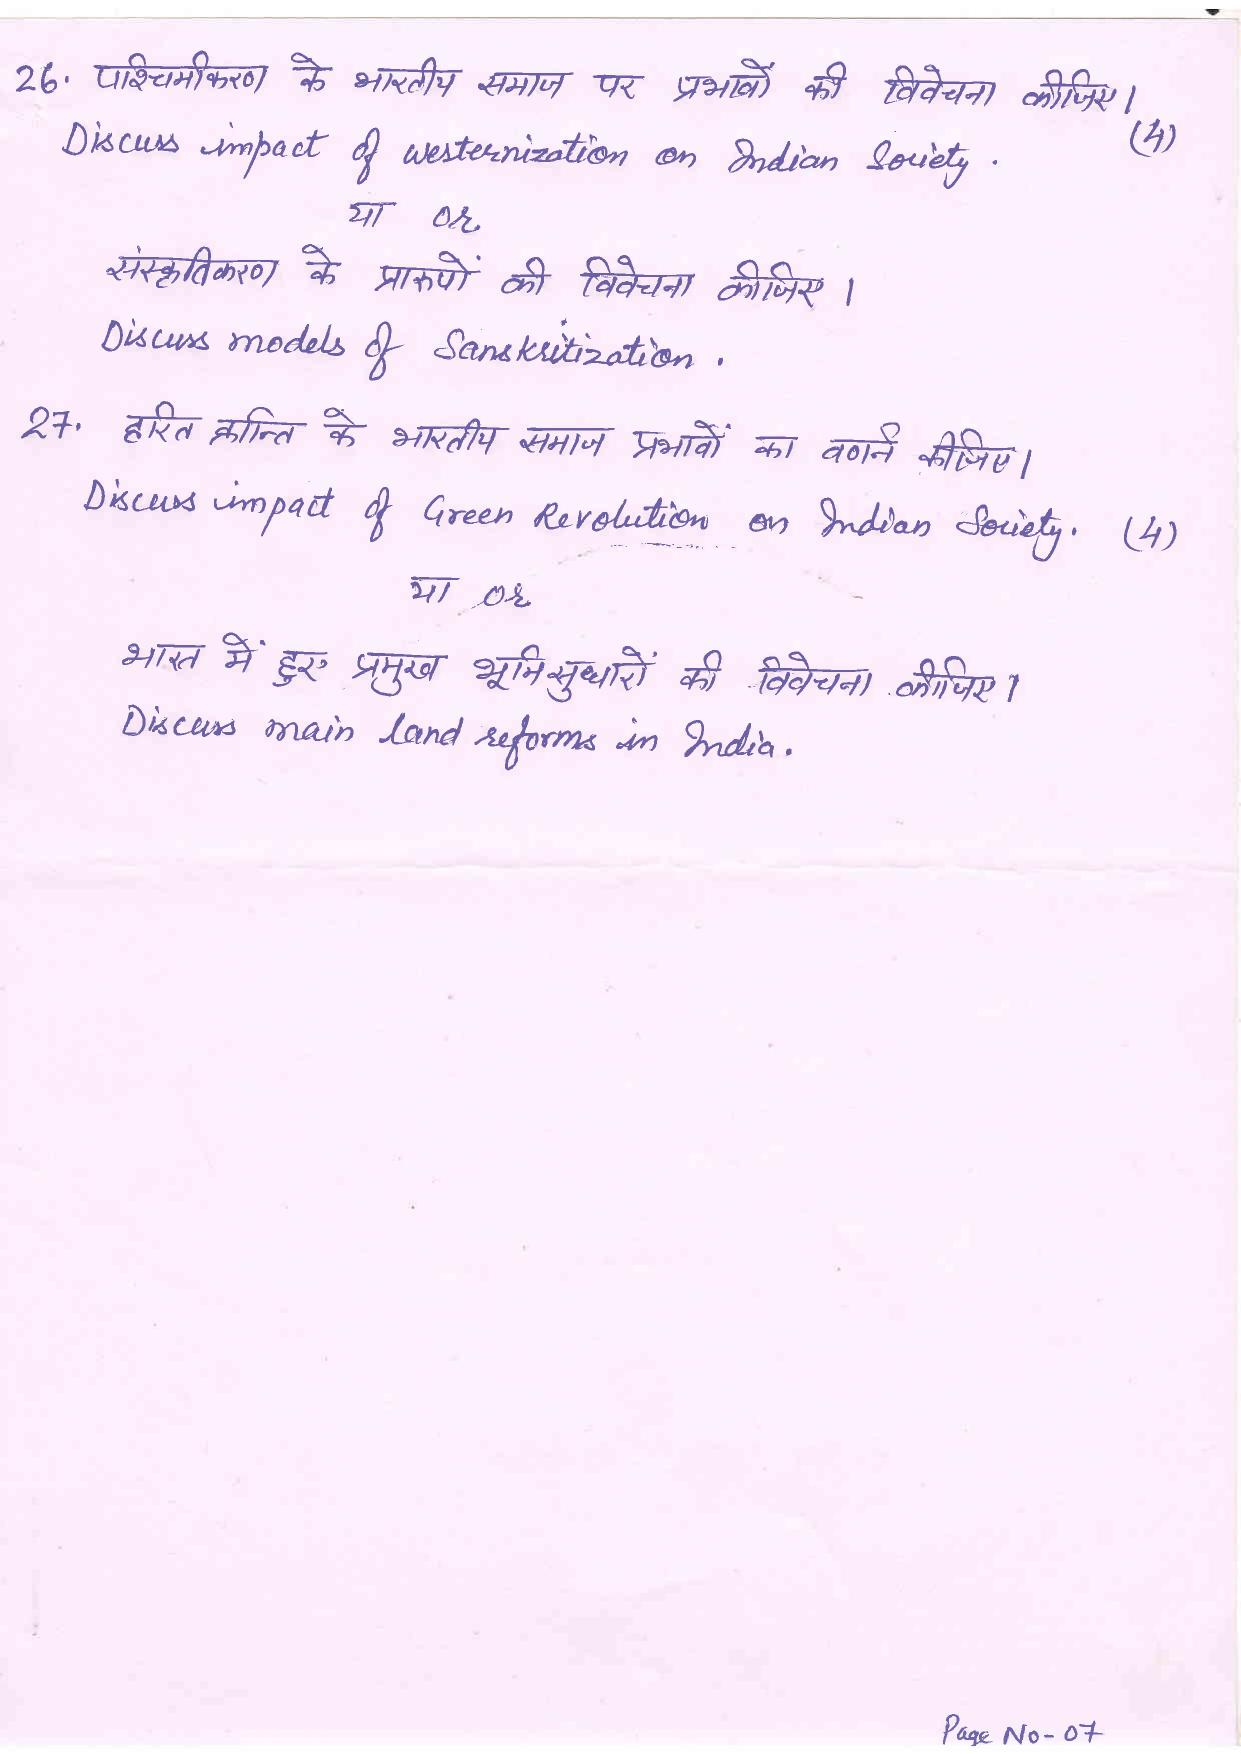 26. पाश्चिमीकरण के भारतीय समाज पर प्रभावों की विवेचना कीजिए।
(4)
Discuss impact of westernization on Indian Society.
या or
संस्कृतिकरण के प्रारुपों की विवेचना कीजिए।
Discuss models of Sanskritization.
27. हरित क्रान्ति के भारतीय समाज प्रभावों का वर्णन कीजिए।
Discuss impact of Green Revolution on Indian Society. (4)
या or
भारत में हुए प्रमुख भूमिसुधारों की विवेचना कीजिए।
Discuss main land reforms in India.
Page No-07